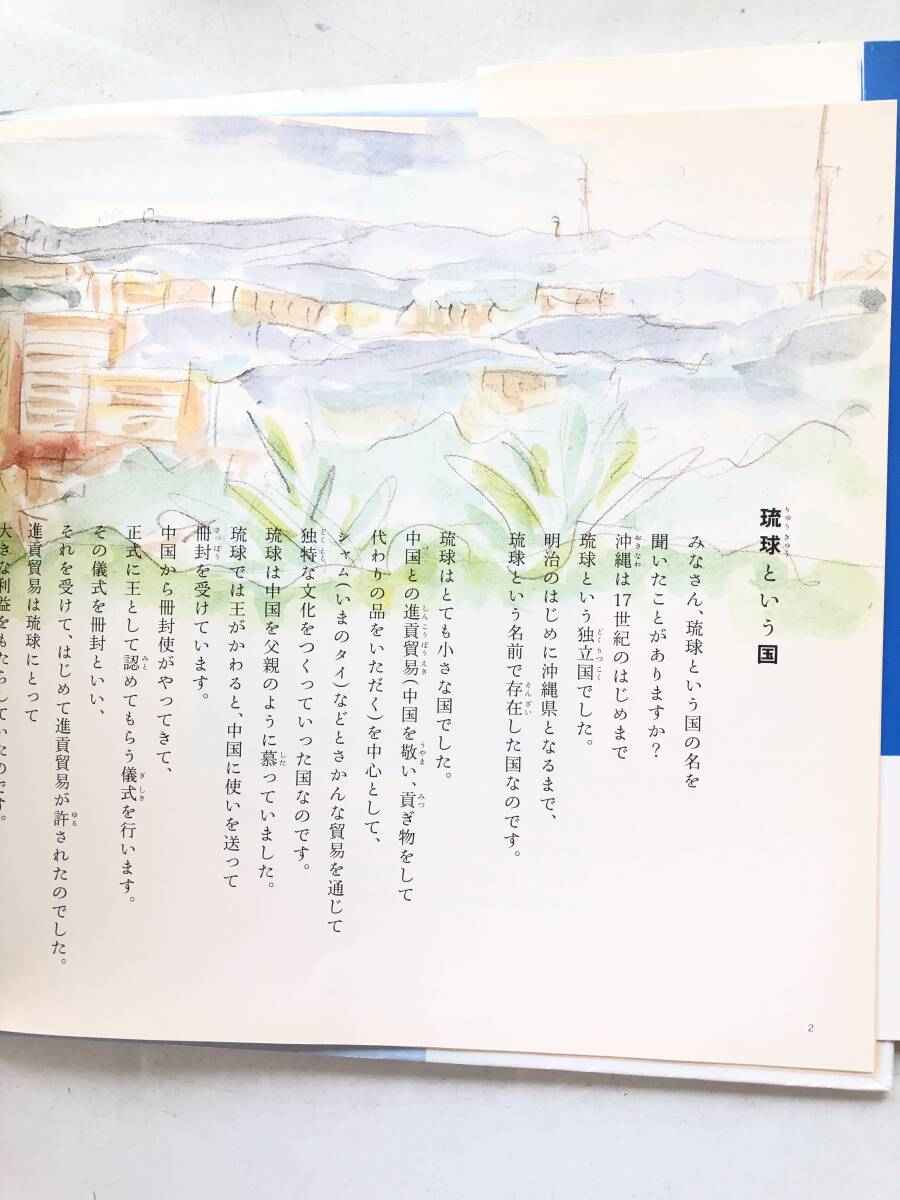 琉球という国
みなさん、琉球という国の名を
聞いたことがありますか?
沖縄は17世紀のはじめまで
琉球という独立国でした。
明治のはじめに沖縄県となるまで、
琉球という名前で存在した国なのです。
琉球はとても小さな国でした。
中国との進貢貿易(中国を敬い、貢ぎ物をして
代わりの品をいただく)を中心として、
シャム(いまのタイ)などとさかんな貿易を通じて
独特な文化をつくっていった国なのです。
琉球は中国を父親のように慕っていました。
琉球では王がかわると、中国に使いを送って
冊封を受けています。
中国から冊封使がやってきて、
正式に王として認めてもらう儀式を行います。
その儀式を冊封といい、
それを受けて、はじめて進貢貿易が許されたのでした。
進貢貿易は琉球にとって
大きな利益をもたらしていたのです。
2